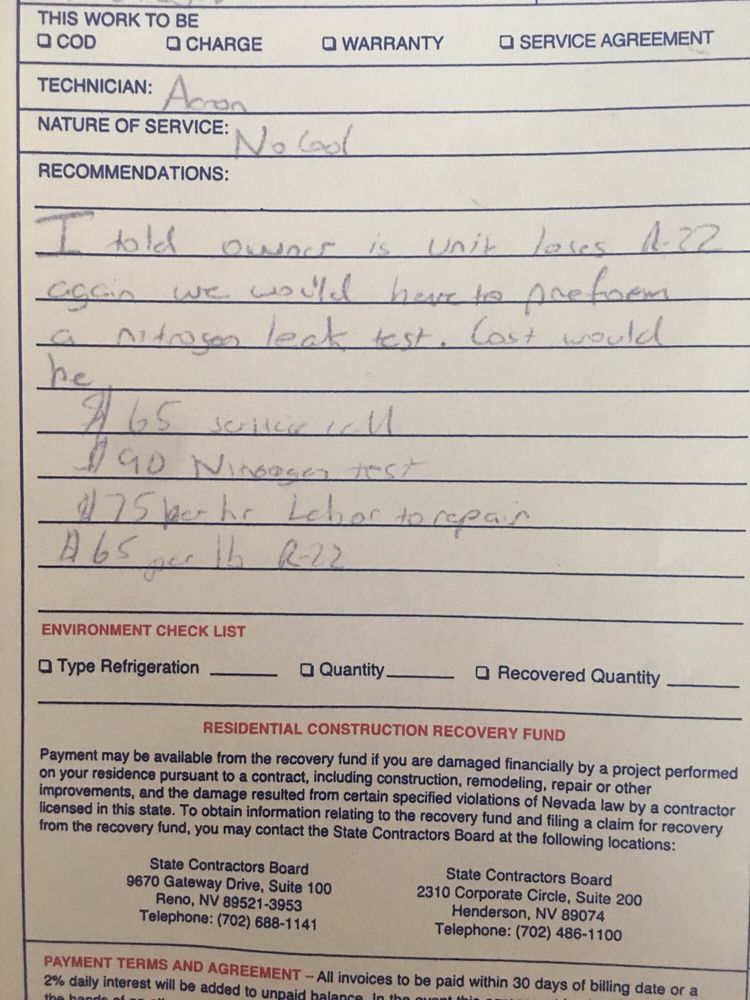 THIS WORK TO BE
COD CHARGE WARRANTY SERVICE AGREEMENT
TECHNICIAN: Aaron
NATURE OF SERVICE: No Cool
RECOMMENDATIONS:
I told owner is unit loses R-22
again we would have to preform
a nitrogen leak test. Cost would
be
$65 service call
$90 Nitrogen test
$75 per hr Labor to repair
$65 per lb R-22
ENVIRONMENT CHECK LIST
Type Refrigeration Quantity Recovered Quantity
RESIDENTIAL CONSTRUCTION RECOVERY FUND
Payment may be available from the recovery fund if you are damaged financially by a project performed
on your residence pursuant to a contract, including construction, remodeling, repair or other
improvements, and the damage resulted from certain specified violations of Nevada law by a contractor
licensed in this state. To obtain information relating to the recovery fund and filing a claim for recovery
from the recovery fund, you may contact the State Contractors Board at the following locations:
State Contractors Board
9670 Gateway Drive, Suite 100
Reno, NV 89521-3953
Telephone: (702) 688-1141
State Contractors Board
2310 Corporate Circle, Suite 200
Henderson, NV 89074
Telephone: (702) 486-1100
PAYMENT TERMS AND AGREEMENT – All invoices to be paid within 30 days of billing date or a
2% daily interest will be added to unpaid balance. In the event this